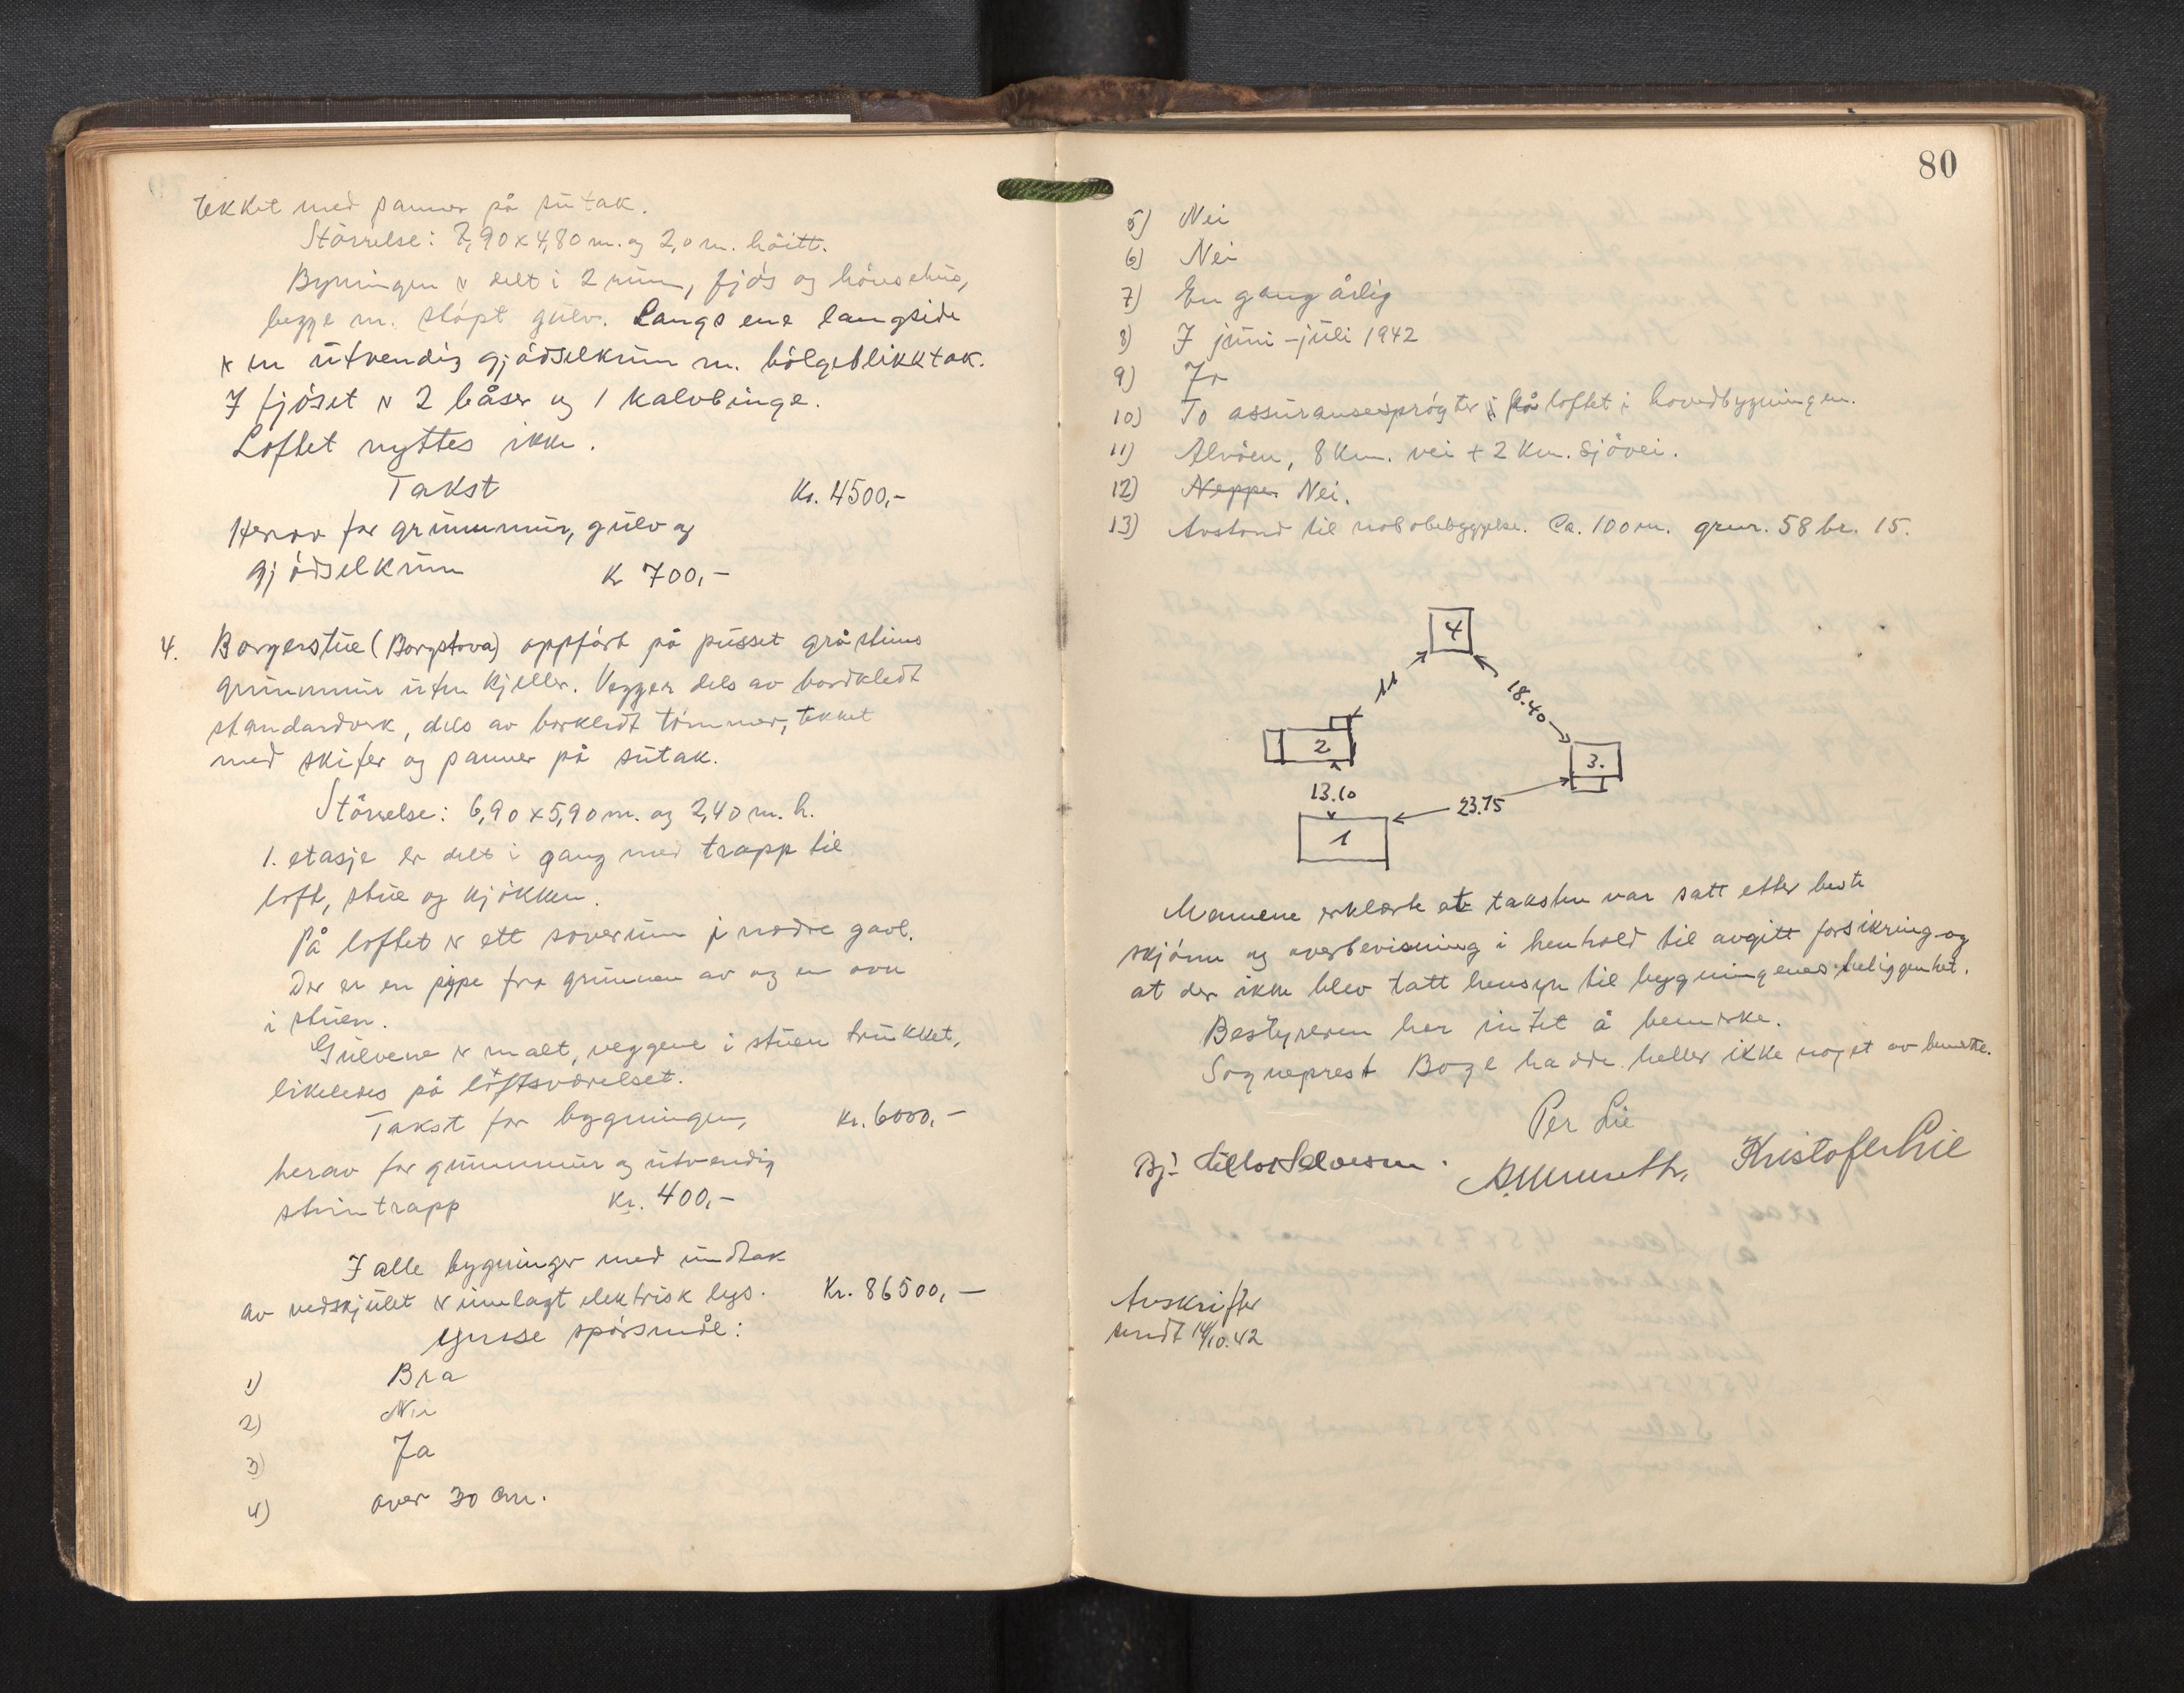 tekket med panner på sutak.
Störrelse: 7,90 x 4,80 m. og 2,0 m. höitt.
Byningen er delt i 2 rum, fjös og hönsehus,
begge m. støpt gulv. Langs ene langside
er en utvendig gjödselkum m. bölgeblikktak.
I fjöset er 2 båser og 1 kalvbinge.
Loftet nyttes ikke.
Takst Kr. 4500,-
Herav for grunnmur, gulv og
gjödselkum Kr 700,-
4. Borgerstue (Borgstova) oppfört på pusset gråstens
grunnmur uten kjeller. Vegger dels av bordkledt
standardverk, dels av borkledt tömmer, tekket
med skifer og panner på sutak.
Störrelse: 6,90 x 5,90 m. og 2,40 m. h.
1. etasje er delt i gang med trapp til
loft, stue og kjökken.
På loftet er ett soverum i nordre gavl.
Der er en pipe fra grunnen av og en ovn
i stuen.
Gulvene er malt, veggene i stuen trukket,
likeledes på loftsværelset.
Takst for bygningen, Kr. 6000,-
herav for grunnmur og utvendig
stentrapp Kr. 400,-
I alle bygninger med undtak
av vedskjulet er innlagt elektrisk lys. Kr. 86500,-
Ymse spörsmål:
1) Bra
2) Nei
3) Ja
4) over 30 cm.
80
5) Nei
6) Nei
7) En gang årlig
8) I juni-juli 1942
9) Ja
10) To assuransesprøyter på loftet i hovedbygningen.
11) Alvöen, 8 Km. vei + 2 Km. sjövei.
12) Neppe Nei.
13) Avstand til nabobebyggelse. Ca. 100 m. gnr. 58 br. 15.
4
11
18.40
2
3.
13.10
23.75
1
Mennene erklærte at taksten var satt etter beste
skjönn og overbevisning i henhold til avgitt forsikring og
at der ikke blev tatt hensyn til bygningenes beliggenhet.
Bestyreren har intet å bemerke.
Sogneprest Boge hadde heller ikke noget av bemerke.
Per Lie
Kristofer Lie
Avskrifter
sendt 14/10.42